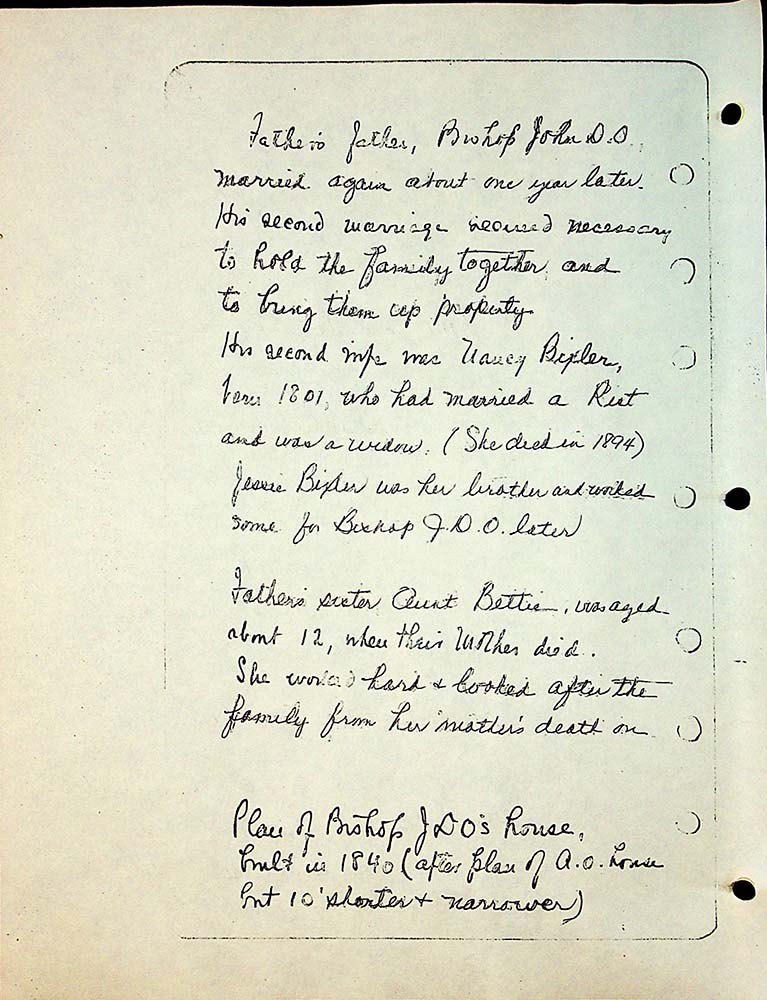 Father's father, Bishop John D.O.
married again about one year later.
His second marriage seemed necessary
to hold the family together and
to bring them up properly
His second wife was Nancy Bixler,
born 1801, who had married a Rist
and was a widow. (She died in 1894)
Jessie Bixler was her brother and worked
some for Bishop J.D.O. later
Father's sister Aunt Bettie, was aged
about 12, when their Mother died.
She worked hard + looked after the
family from her mother's death on
Plan of Bishop JDO's house,
built in 1840 (after plan of A.O. house
but 10' shorter + narrower)